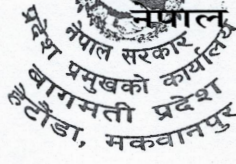 नेपाल
नेपाल सरकार
प्रदेश प्रमुखको कार्यालय
बागमती प्रदेश
हेटौंडा, मकवानपुर